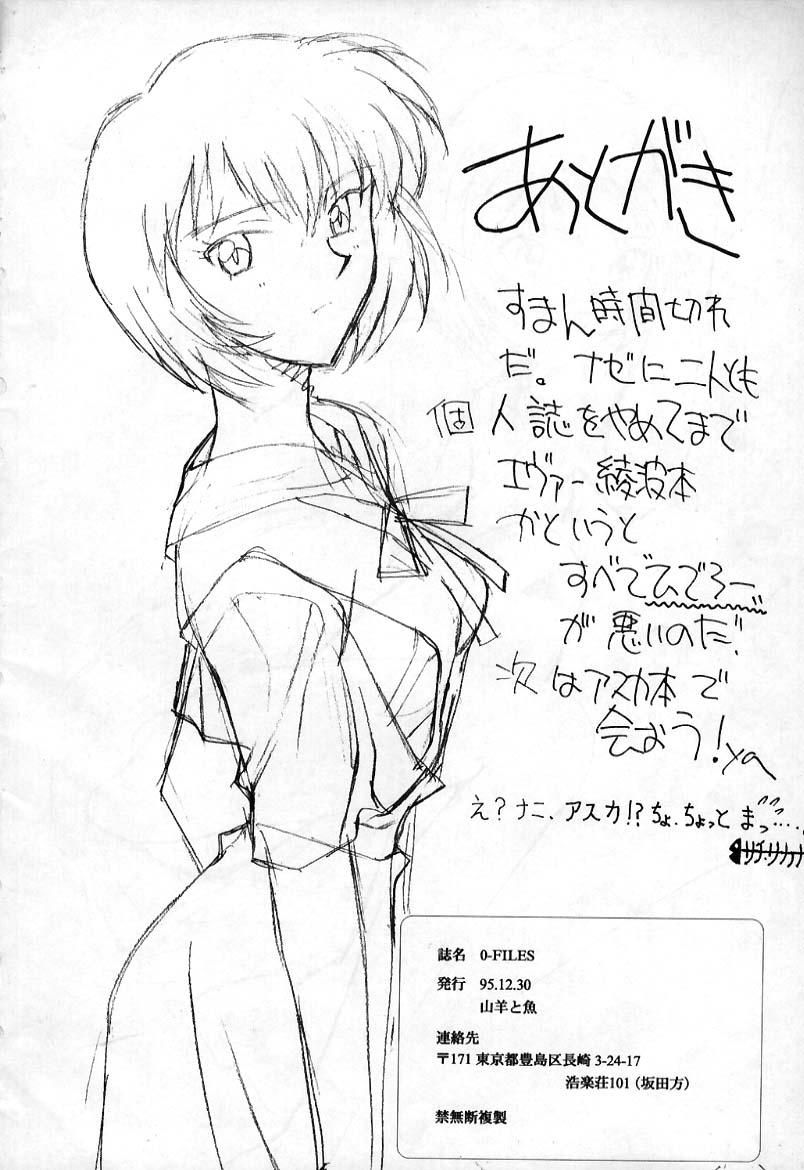 あとがき
すまん時間切れ
だ。ナゼに二人とも
個人誌をやめてまで
エヴァー綾波本
かというと
すべてひでろー
が悪いのだ!
次はアスカ本で
会おう!ya
え?ナニ、アスカ!?ちょ、ちょっとまっ……
誌名 0-FILES
発行 95.12.30
山羊と魚
連絡先
〒171 東京都豊島区長崎 3-24-17
浩楽荘101(坂田方)
禁無断複製